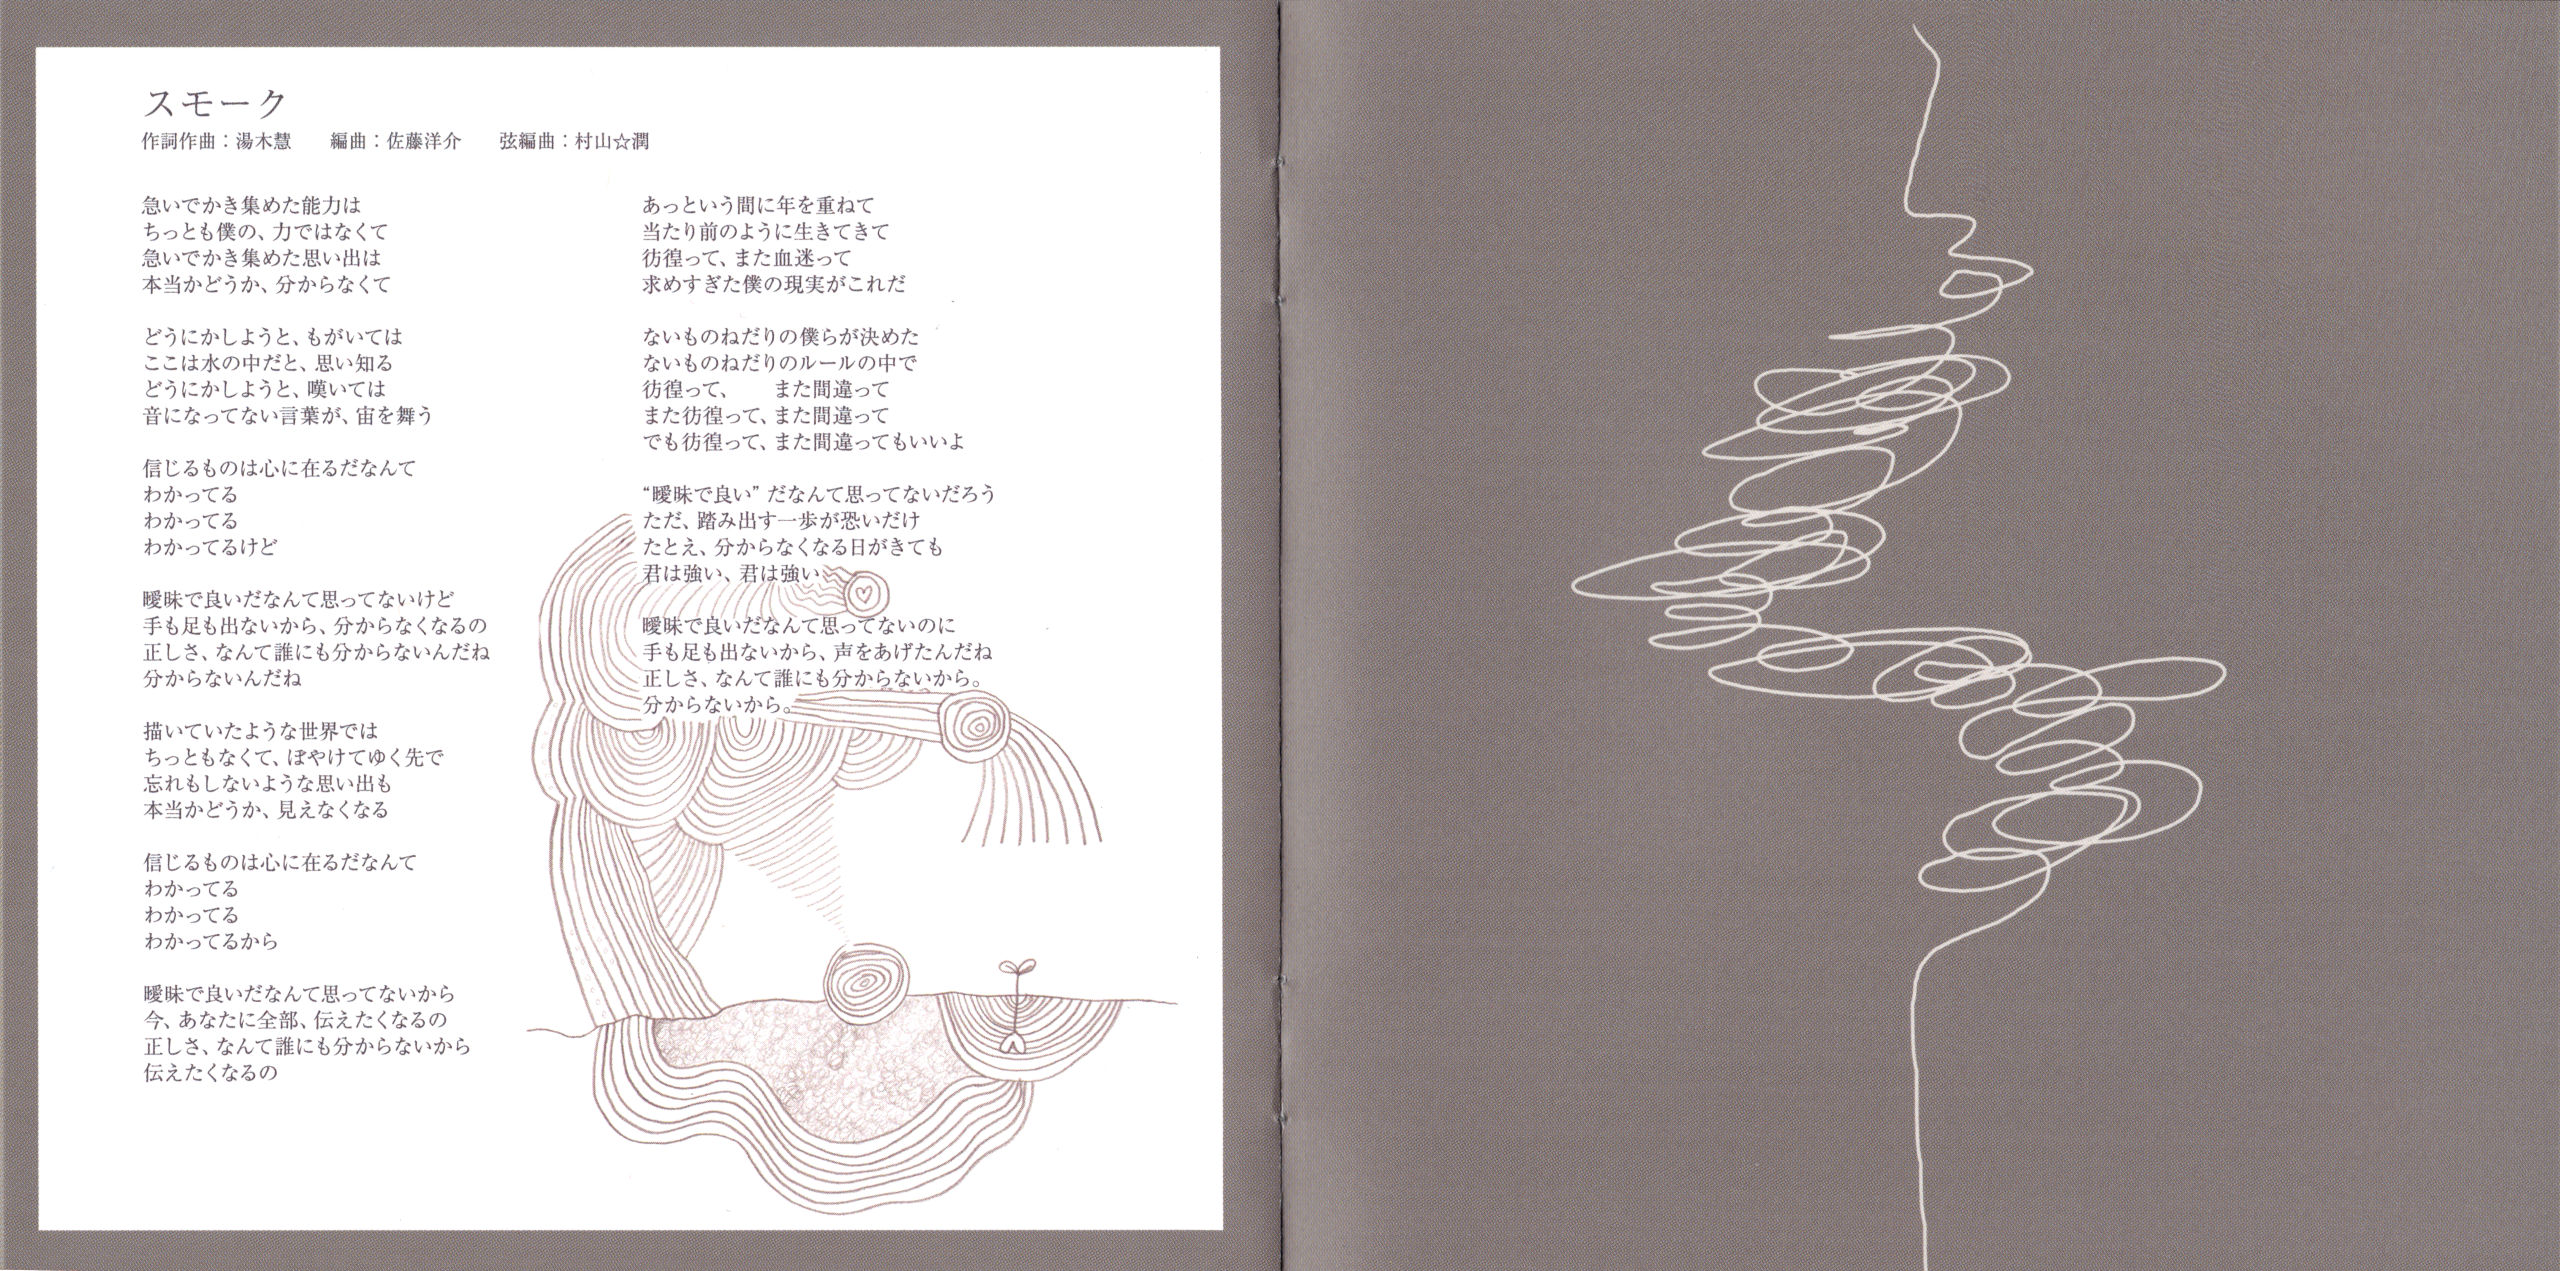 スモーク
作詞作曲：湯木慧　　編曲：佐藤洋介　　弦編曲：村山☆潤
急いでかき集めた能力は
ちっとも僕の、力ではなくて
急いでかき集めた思い出は
本当かどうか、分からなくて
どうにかしようと、もがいては
ここは水の中だと、思い知る
どうにかしようと、嘆いては
音になってない言葉が、宙を舞う
信じるものは心に在るだなんて
わかってる
わかってる
わかってるけど
曖昧で良いだなんて思ってないけど
手も足も出ないから、分からなくなるの
正しさ、なんて誰にも分からないんだね
分からないんだね
描いていたような世界では
ちっともなくて、ぼやけてゆく先で
忘れもしないような思い出も
本当かどうか、見えなくなる
信じるものは心に在るだなんて
わかってる
わかってる
わかってるから
曖昧で良いだなんて思ってないから
今、あなたに全部、伝えたくなるの
正しさ、なんて誰にも分からないから
伝えたくなるの
あっという間に年を重ねて
当たり前のように生きてきて
彷徨って、また血迷って
求めすぎた僕の現実がこれだ
ないものねだりの僕らが決めた
ないものねだりのルールの中で
彷徨って、　　また間違って
また彷徨って、また間違って
でも彷徨って、また間違ってもいいよ
“曖昧で良い” だなんて思ってないだろう
ただ、踏み出す一歩が恐いだけ
たとえ、分からなくなる日がきても
君は強い、君は強い
曖昧で良いだなんて思ってないのに
手も足も出ないから、声をあげたんだね
正しさ、なんて誰にも分からないから。
分からないから。